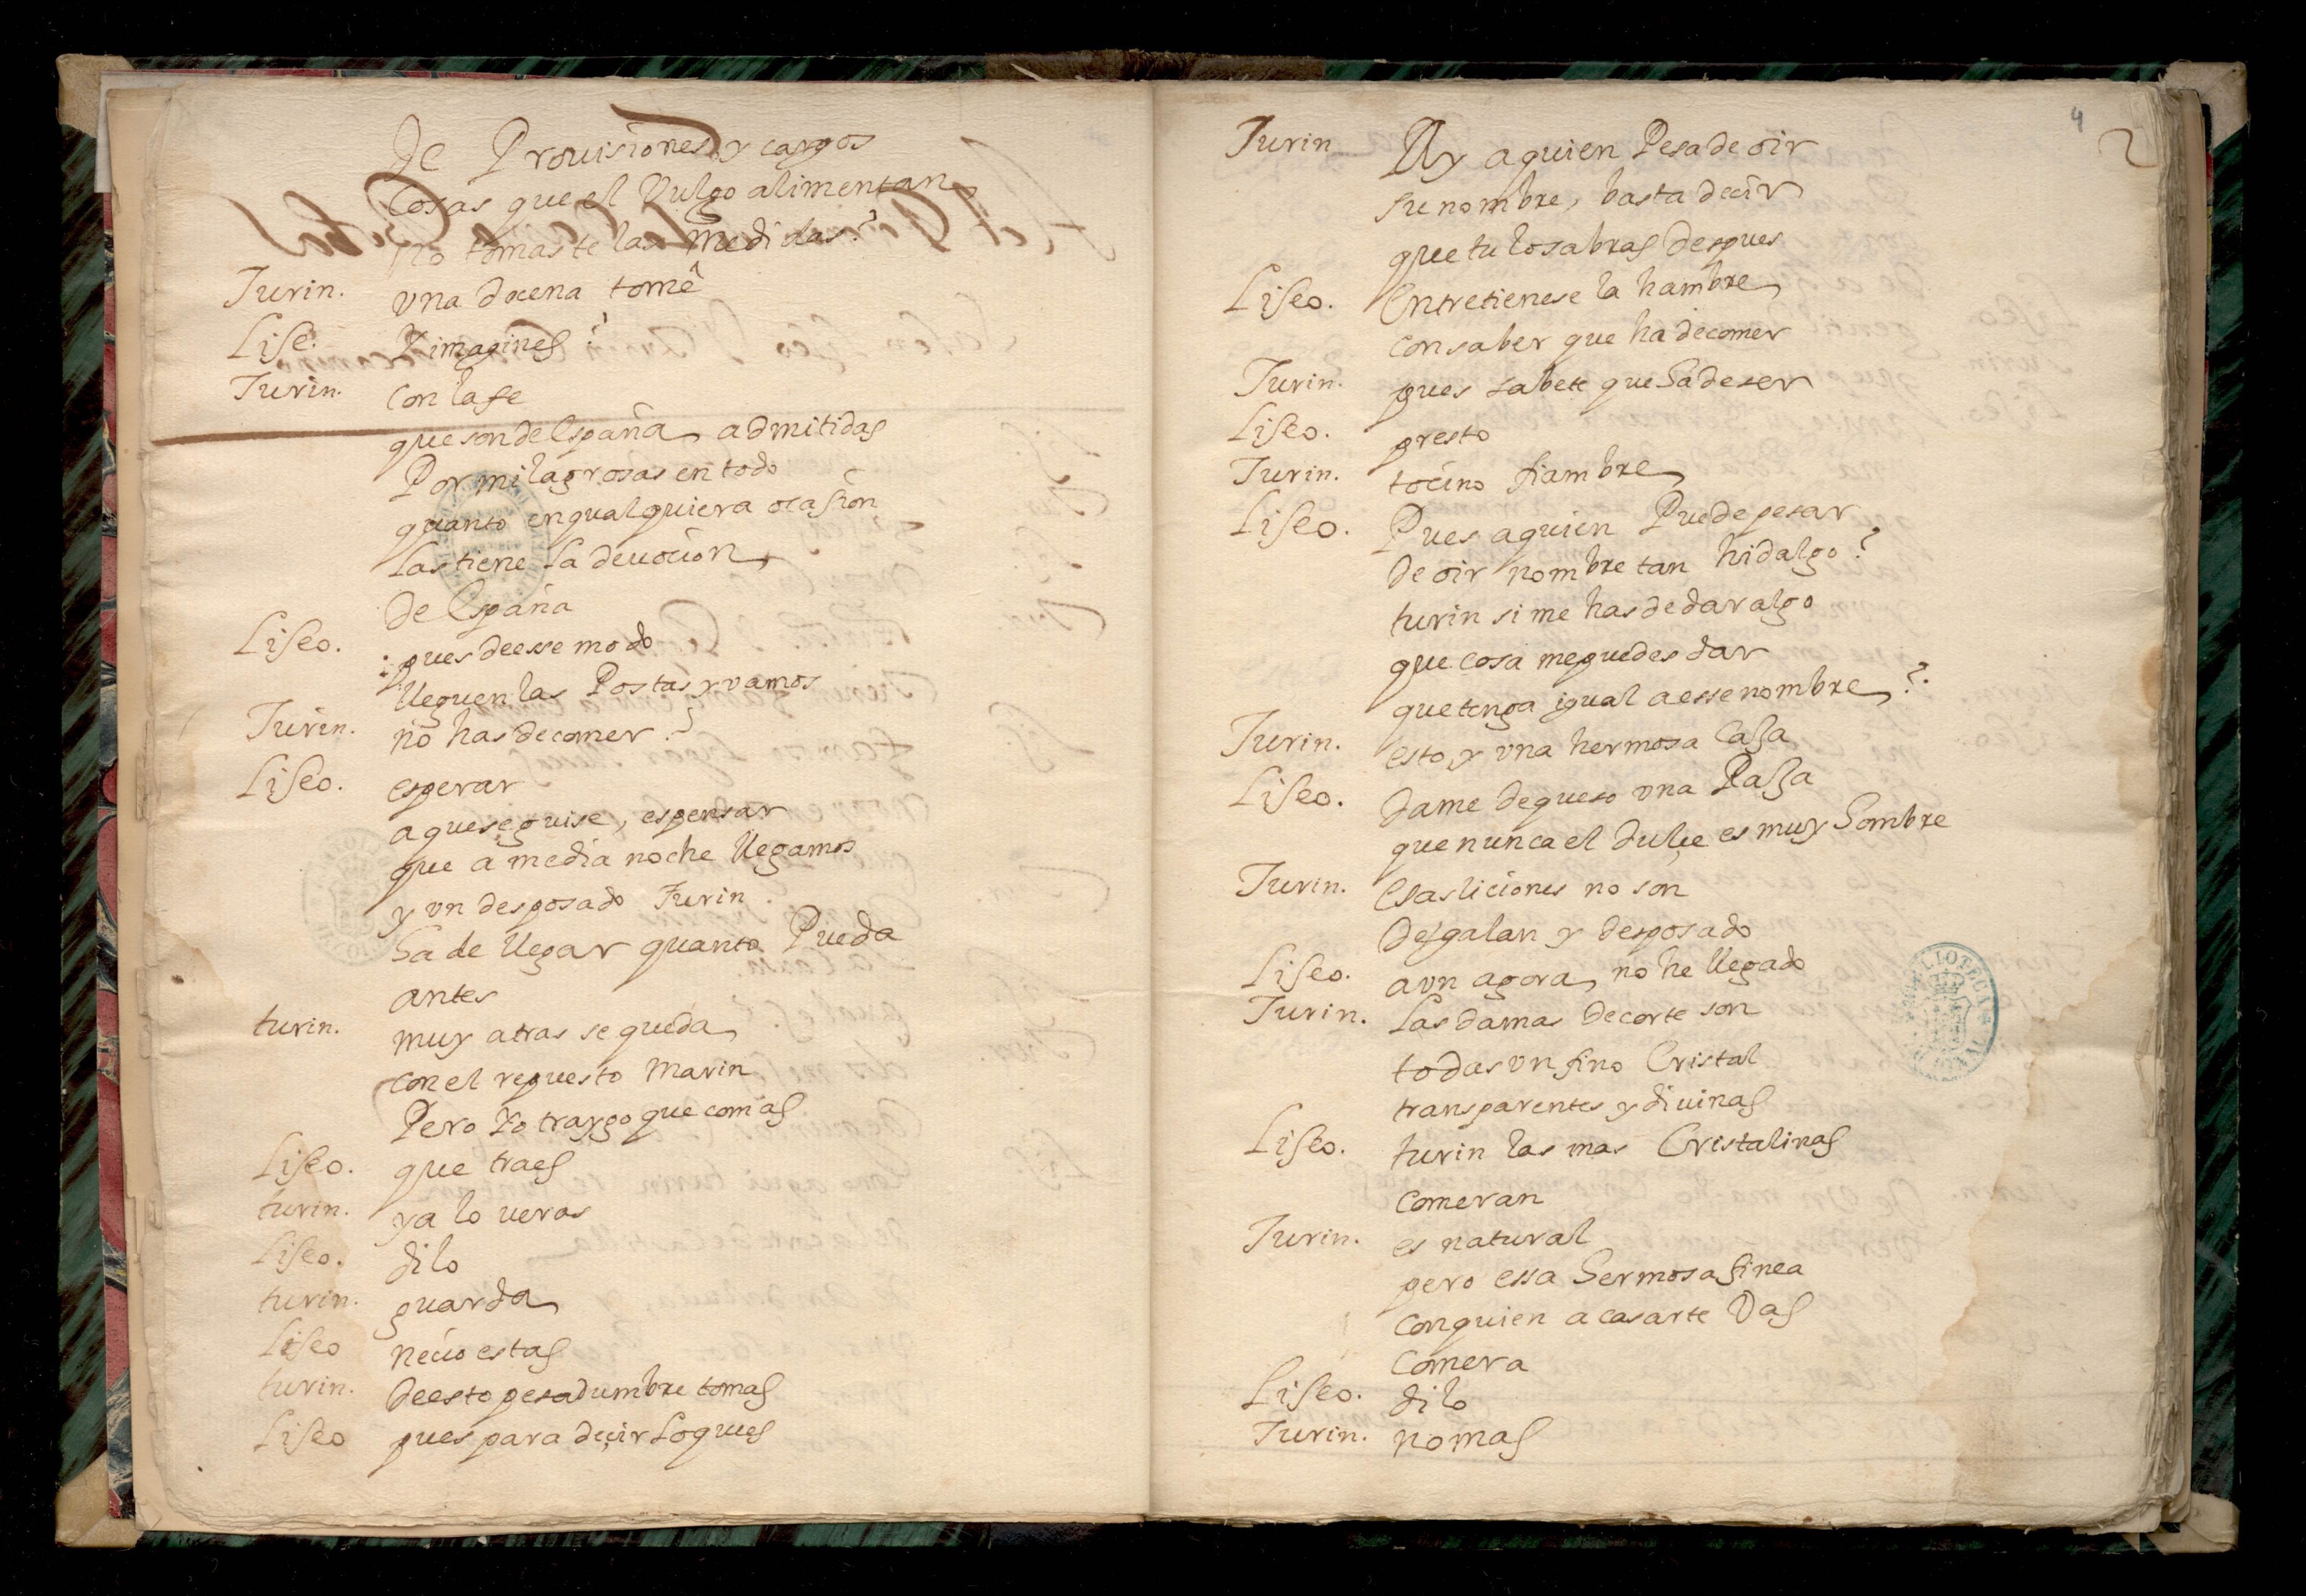 De Prouisiones y cargos
Cosas que el Vulgo alimentan
no tomaste las medidas?
Turin. vna docena tomê
Lise. Y imagines?
Turin. con la fe
que son de españa admitidas
Por milagrosas en todo
quanto en qualquiera ocasion
las tiene la deuocion
de españa
Liseo. pues de esse modo
lleguen las Postas y vamos
Turin. no has de comer?
Liseo. esperar
a que se guise, es pensar
que a media noche llegamos
y vn desposado Turin
ha de llegar quanto Pueda
antes
turin. muy atras se queda
con el repuesto Marin
Pero Yo traygo que comas
Liseo. que traes
turin. ya lo veras
Liseo. dilo
turin. guarda
Liseo necio estas
turin. de esto pesadumbre tomas
Liseo pues para deçir lo ques
4
2
Turin Ay a quien Pesa de oir
su nombre, basta decir
que tu lo sabras despues
Liseo. Entretienese la hambre
con saber que ha de comer
Turin. pues sabete que ha de ser
Liseo. presto
Turin. tocino fiambre
Liseo. Pues a quien Puede pesar
de oir nombre tan hidalgo?
turin si me has de dar algo
que cosa me puedes dar
que tenga igual a esse nombre?
Turin. esto y vna hermosa Caja
Liseo. dame de queso vna Raja
que nunca el dulçe es muy hombre
Turin. esas liciones no son
de galan y desposado
Liseo. avn agora no he llegado
Turin. las damas de corte son
todas vn fino Cristal
transparentes y diuinas
Liseo. turin las mas Cristalinas
comeran
Turin. es natural
pero essa hermosa finea
con quien a casarte Vas
comera
Liseo. dilo
Turin. no mas